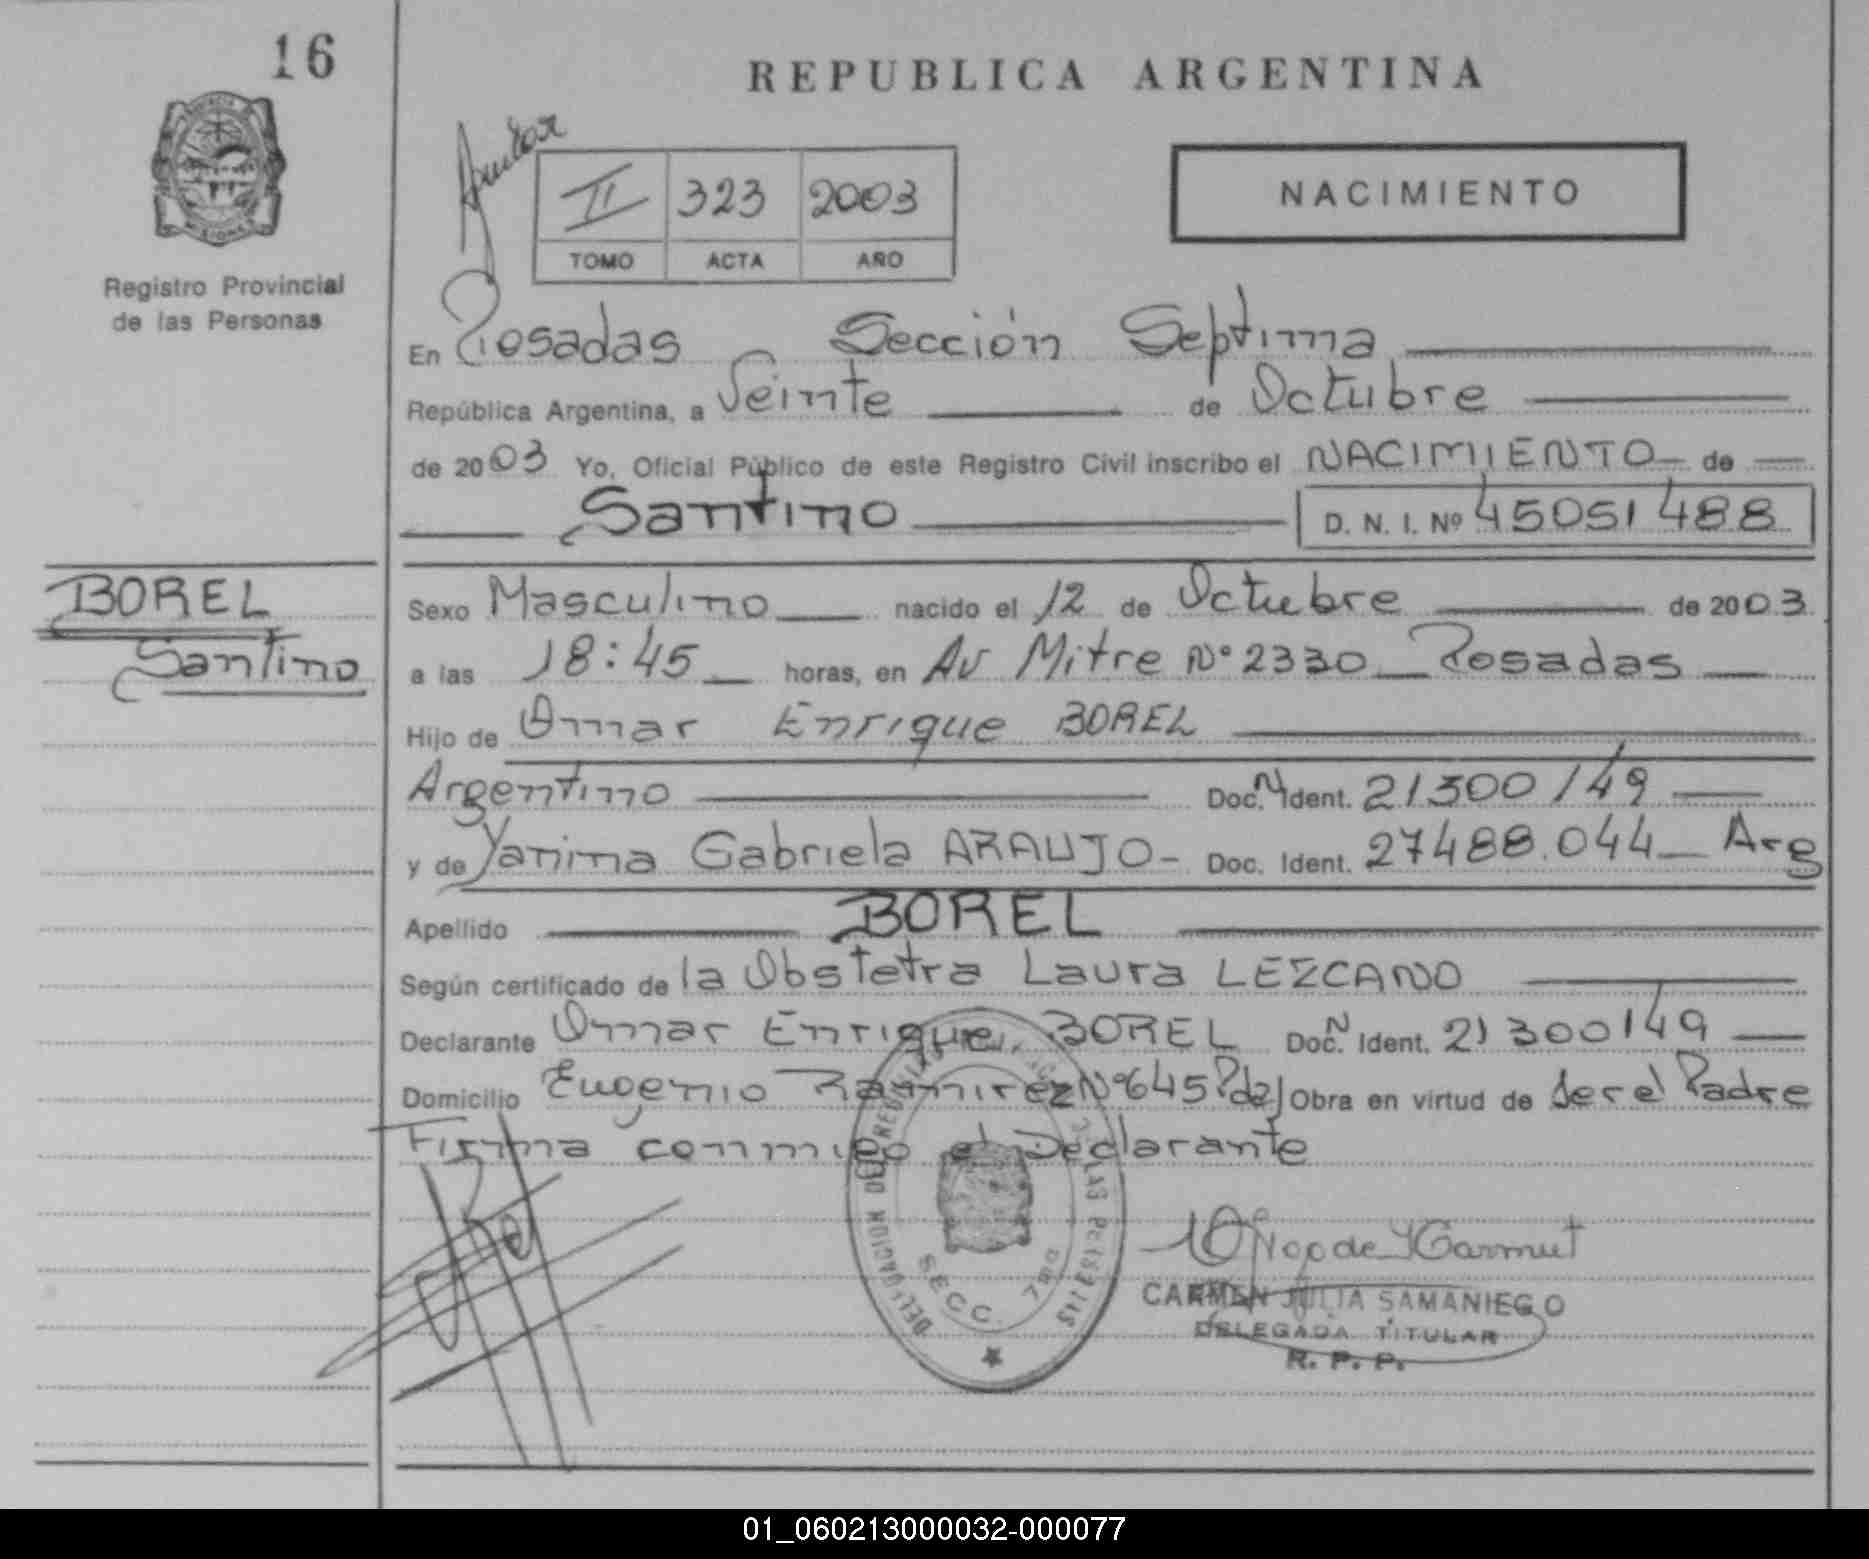 16
REPUBLICA ARGENTINA
II 323 2003
TOMO ACTA AÑO
NACIMIENTO
Registro Provincial
de las Personas
En Posadas Sección Septima
República Argentina, a Veinte de Octubre
de 2003 Yo, Oficial Público de este Registro Civil inscribo el NACIMIENTO de
Santino D. N. I. Nº 45051488
BOREL
Santino
Sexo Masculino nacido el 12 de Octubre de 2003
a las 18:45 horas, en Av Mitre Nº 2330 Posadas
Hijo de Omar Enrique BOREL
Argentino Doc. N Ident. 21300149
y de Yanina Gabriela ARAUJO- Doc. Ident. 27488.044 Arg
Apellido BOREL
Según certificado de la Obstetra Laura LEZCANO
Declarante Omar Enrique BOREL Doc. N Ident. 21300149
Domicilio Eugenio Ramirez Nº 645 Pdas Obra en virtud de ser el Padre
Firma conmigo el Declarante
SECC. 7ma
CARMEN JULIA SAMANIEGO
DELEGADA TITULAR
R. P. P.
01_060213000032-000077